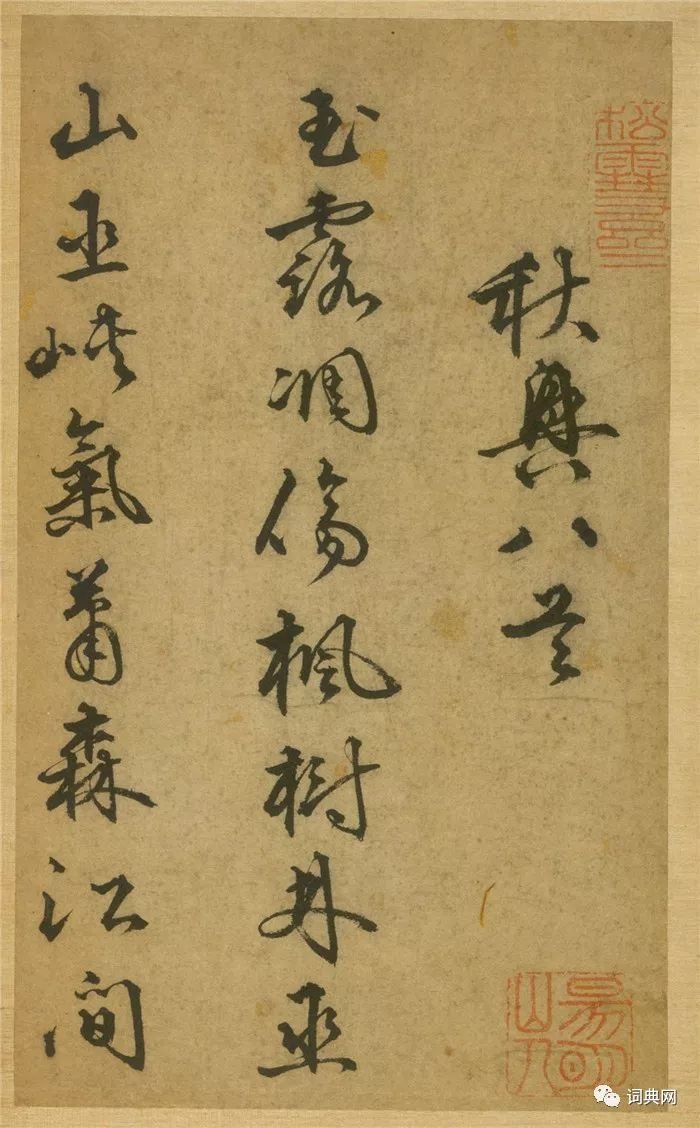 秋興八首
玉露凋傷楓樹林巫
山巫峽氣蕭森江間
词典网